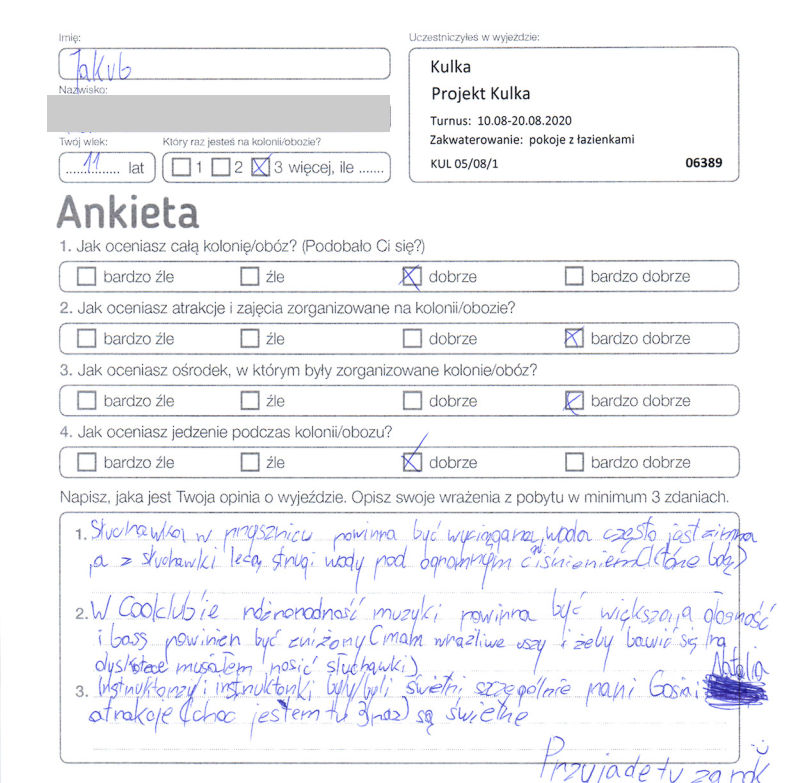 Imię:
Jakub
Nazwisko:
Twój wiek:
11 lat
Który raz jesteś na kolonii/obozie?
1 2 3 więcej, ile .......
Uczestniczyłeś w wyjeździe:
Kulka
Projekt Kulka
Turnus: 10.08-20.08.2020
Zakwaterowanie: pokoje z łazienkami
KUL 05/08/1 06389
Ankieta
1. Jak oceniasz całą kolonię/obóz? (Podobało Ci się?)
bardzo źle źle dobrze bardzo dobrze
2. Jak oceniasz atrakcje i zajęcia zorganizowane na kolonii/obozie?
bardzo źle źle dobrze bardzo dobrze
3. Jak oceniasz ośrodek, w którym były zorganizowane kolonie/obóz?
bardzo źle źle dobrze bardzo dobrze
4. Jak oceniasz jedzenie podczas kolonii/obozu?
bardzo źle źle dobrze bardzo dobrze
Napisz, jaka jest Twoja opinia o wyjeździe. Opisz swoje wrażenia z pobytu w minimum 3 zdaniach.
1. Słuchawka w prysznicu powinna być wyciągana, woda często jest zimna
, a z słuchawki lecą strugi wody pod ogromnym ciśnieniem (które
2. W Coolclubie różnorodność muzyki powinna być większa, a głośność
i bass powinien być zniżony (mam wrażliwe uszy i żeby bawić się na
dyskotece musałem nosić słuchawki)
3. Instruktorzy i instruktonki były/byli świetni szczególnie pani Gosia i Natalia
atrakcje (choć jestem tu 3 raz) są świetne
Przyjadę tu za rok